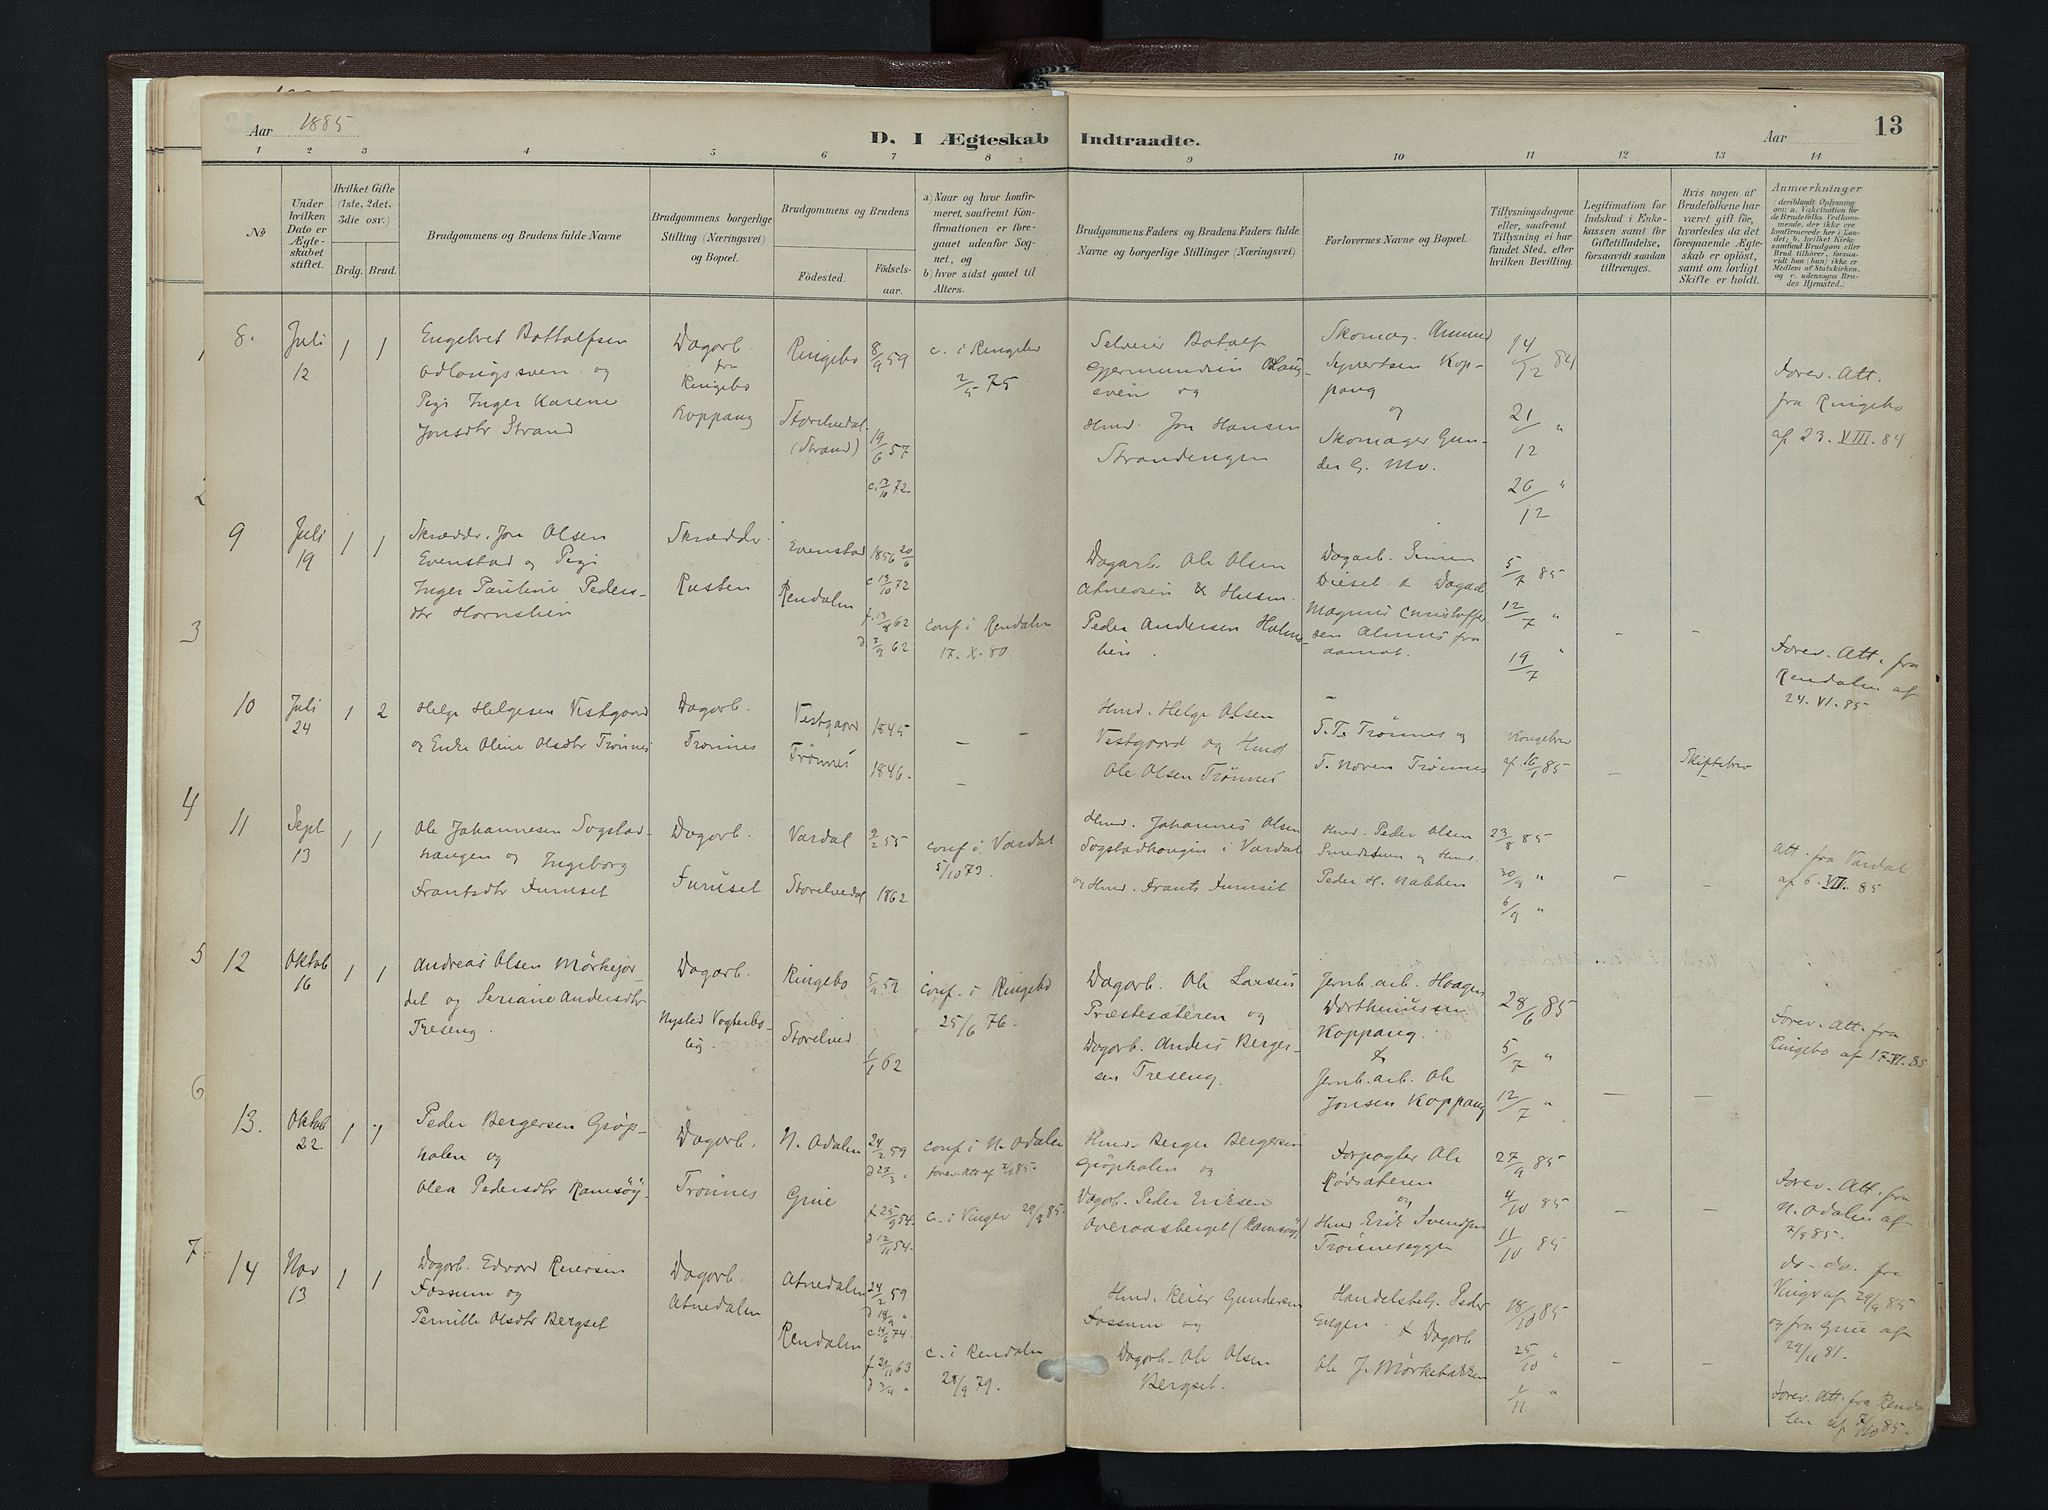 Aar 1885
D. I Ægteskab Indtraadte.
Aar
13
1 2 3 4 5 6 7 8 9 10 11 12 13 14
No
Under hvilken Dato er Ægteskabet stiftet.
Hvilket Gifte (1ste, 2det, 3die osv.)
Brdg. Brud.
Brudgommens og Brudens fulde Navne
Brudgommens borgerlige Stilling (Næringsvei) og Bopæl.
Brudgommens og Brudens
Fødested.
Fødsels-aar.
a) Naar og hvor konfirmeret, saafremt Konfirmationen er foregaaet udenfor Sognet, og
b) hvor sidst gaaet til Alters.
Brudgommens Faders og Brudens Faders fulde Navne og borgerlige Stillinger (Næringsvei)
Forlovernes Navne og Bopæl.
Tillysningsdagene eller, saafremt Tillysning ei har fundet Sted, efter hvilken Bevilling.
Legitimation for Indskud i Enkekassen samt for Giftetilladelse, forsaavidt saadan tiltrænges.
Hvis nogen af Brudefolkene har været gift før, hvorledes da det foregaaende Ægteskab er opløst, samt om lovligt Skifte er holdt.
Anmærkninger
8. Juli 12 1 1
Engebret Bottolfsen
og
Pige Inger Karene
Jonsdtr Strand
Dagarb.
fra
Ringebo
Koppang
Ringebo
Storelvedal
(Strand)
8/9 59
19/6 57
c. i Ringebo
2/5 75
Gjermundsen
sven og
Hmd. Jon Hansen
Strandengen
Skomag. Amund
Syvertsen Kop-
pang
og
Skomager Gun-
der G. Mo.
14/12 84
21/12 "
26/12 "
Forev. Att.
fra Ringebo
af 23. VIII. 84
9 Juli 19 1 1
Skrædder. Jon Olsen
Evenstad og Pige
Inger Pauline Peders-
dtr Hornshien
Skrædder.
Rusten
Evenstad
Rendalen
1856 20/6
conf. i Rendalen
17. X. 80.
Dagarb. Ole Olsen
Atneosen & Husm.
Peder Andersen
Dagarb. Simen
Diesel & Dagarb
Magnus Christoffer-
sen fra
Aamot.
5/7 85
12/7 "
19/7 "
– –
Forev. Att. fra
Rendalen af
24. VI. 85.
10 Juli 24 1 2
Helge Helgesen Vestgaard
og Enke Oline Olsdtr Trønnes
Dagarb.
Trønnes
Vestgaard
Trønnes
1845
1846.
– –
–
Hmd. Helge Olsen
Vestgaard og Hmd
Ole Olsen Trønnes
T. T. Trønnes og
T. Noren Trønnes
Kongebrev
af 16/1 85
–
Skiftebrev
11 Sept 13 1 1
Ole Johannesen Sogstad-
haugen og Ingeborg
Frantsdtr Furuset
Dagarb.
Furuset
Vardal
Storelvedal
2/2 55
1862
conf. i Vardal
5/10 73.
Hmd. Johannes Olsen
Sogstadhaugen i Vardal
og Hmd. Frants Furuset
Hmd. Peder Olsen
og Hmd.
Peder H. Nabben
23/8 85
30/8 "
6/9 "
– –
Att. fra Vardal
af 6. VII. 85
12 Oktob 16 1 1
Andreas Olsen Mørkejor-
det og Seriane Andersdtr
Treseng.
Dagarb.
Nysted Vogterbo-
lig.
Ringebo
Storelved.
5/9 59
1/1 62
conf. i Ringebo
25/6 76.
Dagarb. Ole Larsen
Præstesæteren og
Dagarb. Anders Berger-
sen Treseng.
Jernb. arb. Haagen
Koppang.
&
Jernb. arb. Ole
Jonsen Koppang
28/6 85
5/7 "
12/7 "
– –
Forev. Att. fra
Ringebo af 17. VI. 85
13. Oktob 22. 1 1
Peder Bergersen Grøp-
holen og
Olea Pedersdtr Ramsøy.
Dagarb.
Trønnes
N. Odalen
Grue
24/2 59
d 27/3 "
f 25/9 54.
d 12/11 54.
conf. i N. Odalen
c. i Vinger
Hmd. Berger Bergersen
Grøpholen og
Dagarb. Peder Eriksen
Overaasberget (Ramsøy)
Forpagter Ole
Rødsæteren
og
Hmd Erik Svendsen
Trønneseggen
27/9 85
4/10 85
11/10 85
– –
Forev. Att. fra
N. Odalen af
7/9 85.
do – do. fra
Vinger af 29/9 85
og fra Grue af
29/11 81.
14 Nov 13 1 1
Dagarb. Edvard Reiersen
Fossum og
Pernille Olsdtr Bergset
Dagarb.
Atnedalen
Atnedalen
Rendalen
24/2 59
f 21/11 63
c. i Rendalen
28/9 79.
Hmd. Reier Gundersen
Fossum og
Dagarb. Ole Olsen
Bergset.
Handelsbet. Peder
Engen & Dagarb
Ole J. Mørkebakken
18/10 85
25/10 "
1/11 "
– –
Forev. Att. fra Renda-
len af 7/10 85.
1
2
3
4
5
6
7